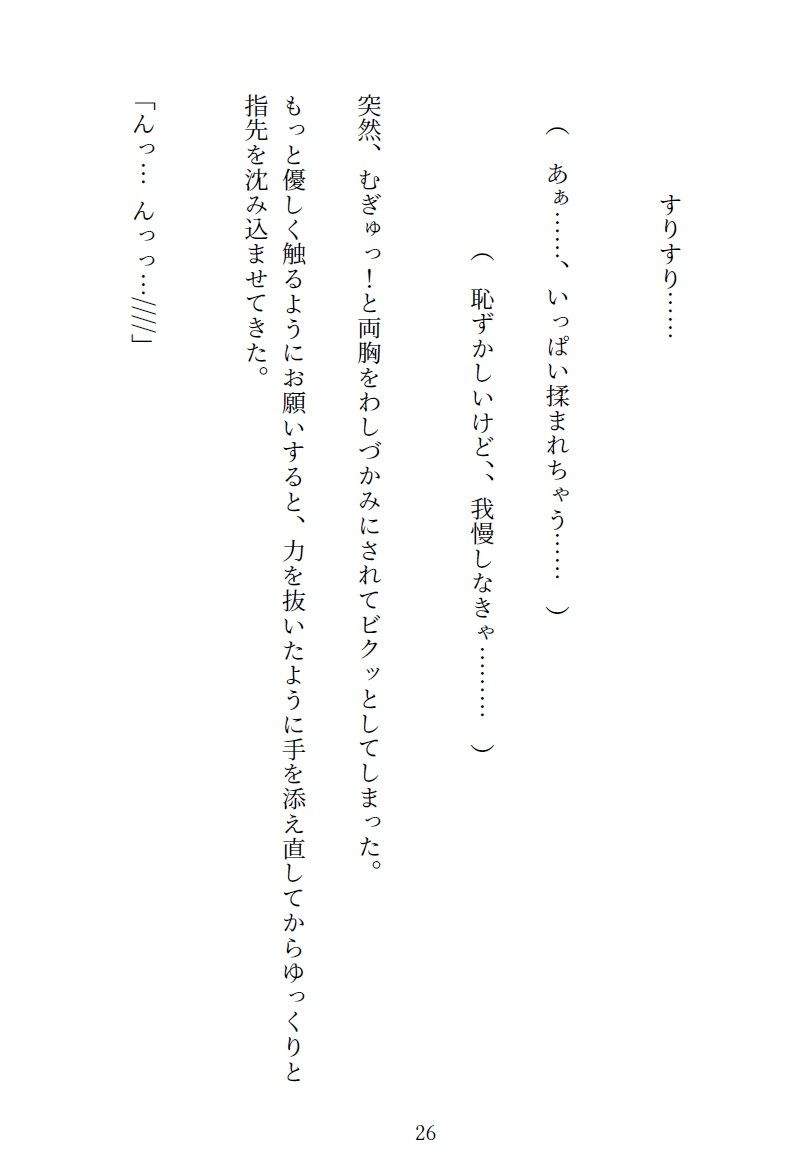 すりすり……
（　あぁ……、いっぱい揉まれちゃう……　）
（　恥ずかしいけど、、我慢しなきゃ………　）
突然、むぎゅっ！と両胸をわしづかみにされてビクッとしてしまった。
もっと優しく触るようにお願いすると、力を抜いたように手を添え直してからゆっくりと
指先を沈み込ませてきた。
「んっ… んっっ…////」
26